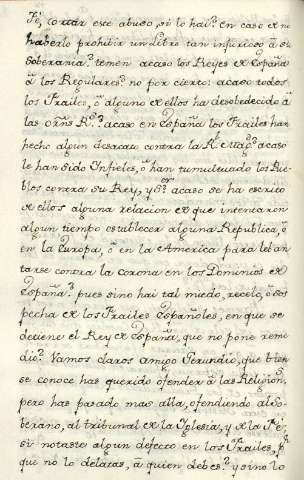 Fé, cortar este abuso, si lo hai? en caso de no
haberlo prohibir un Libro tan injurioso â su
Soberania? temen acaso los Reyes de España
â los Regulares? no por cierto: acaso todos
los Frailes, ô alguno de ellos ha desobedecido â
las orñs Rs? acaso en España los Frailes han
hecho algun desacato contra la Rl Magd? acaso
le han sido Infieles, ô han tumultuado los Pue-
blos contra su Rey, y Sor? acaso se ha escrito
de ellos alguna relacion de que intentaron
algun tiempo establecer alguna Republica, ô
en la Europa, ô en la America para leban
tarse contra la corona en los Dominios de
España? pues sino hai tal miedo, recelo, ô sos
pecha de los Frailes Españoles, en que se
detiene el Rey de España, que no pone reme
dio? Vamos claros amigo Gerundio, que bien
se conoce has querido ofender â las Religions,
pero has pasado mas alla, ofendiendo al So-
berano, al tribunal de la Iglesia, y de la Fé,
si notaste algun defecto en los Frailes, pr
que no le delatas, â quien debes? y sino lo